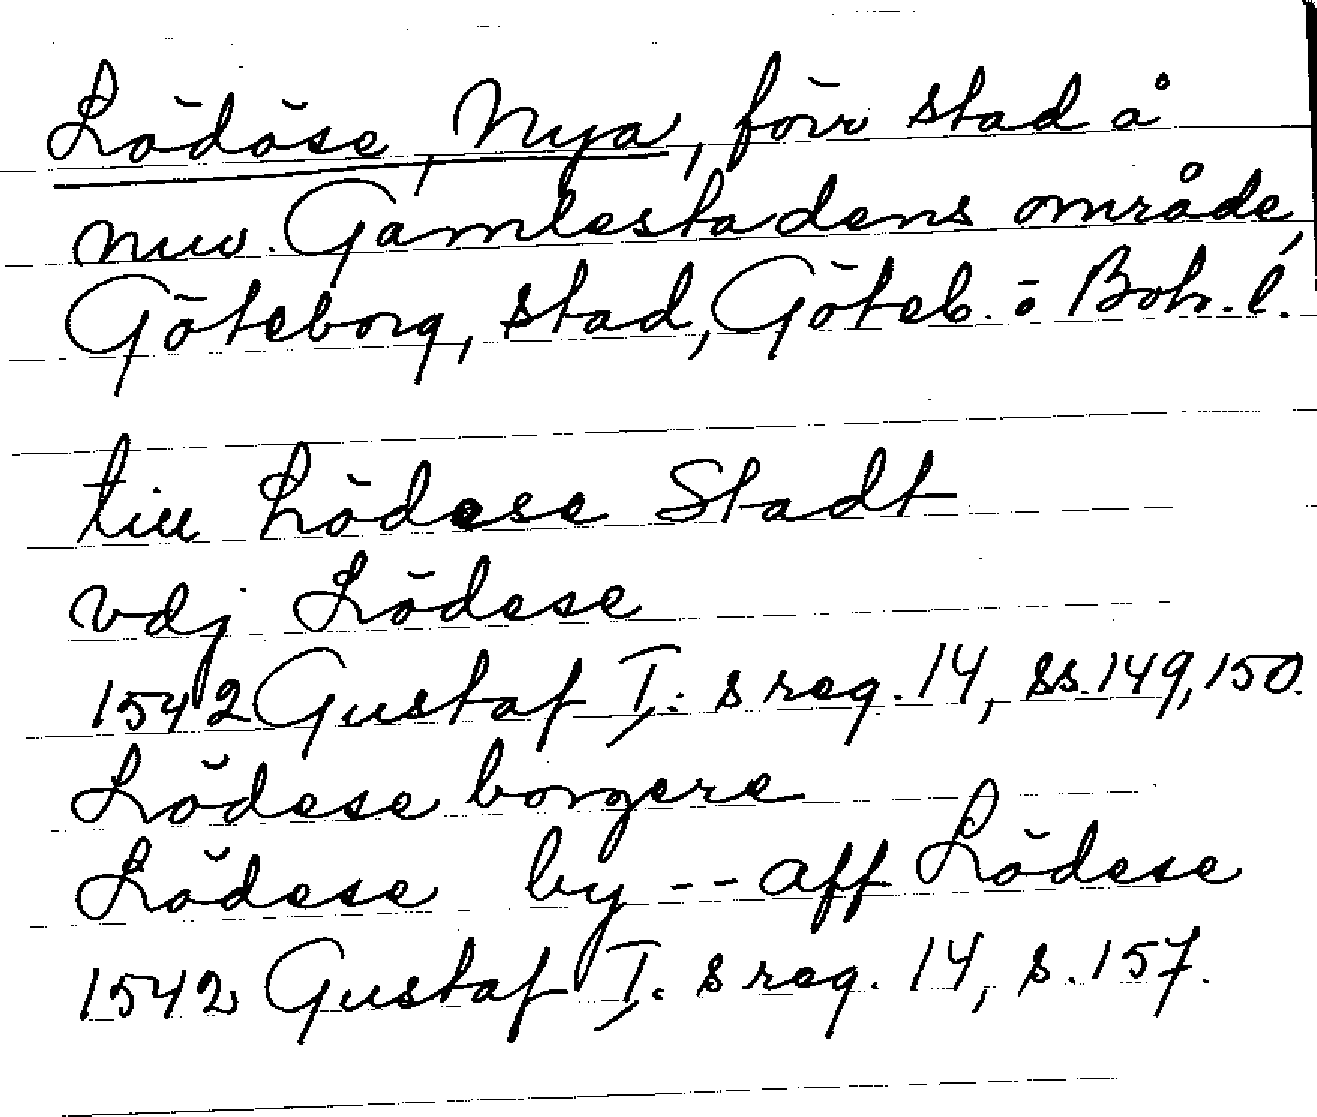 Lödöse, Nya, förr stad å
nuv. Gamlestadens område,
Göteborg, stad, Göteb. o Boh. l.
till Lödese Stadt
vdj Lödese
1542 Gustaf I:s reg. 14, ss. 149, 150.
Lödese borgere
Lödese by -- aff Lödese
1542 Gustaf I:s reg. 14, s. 157.